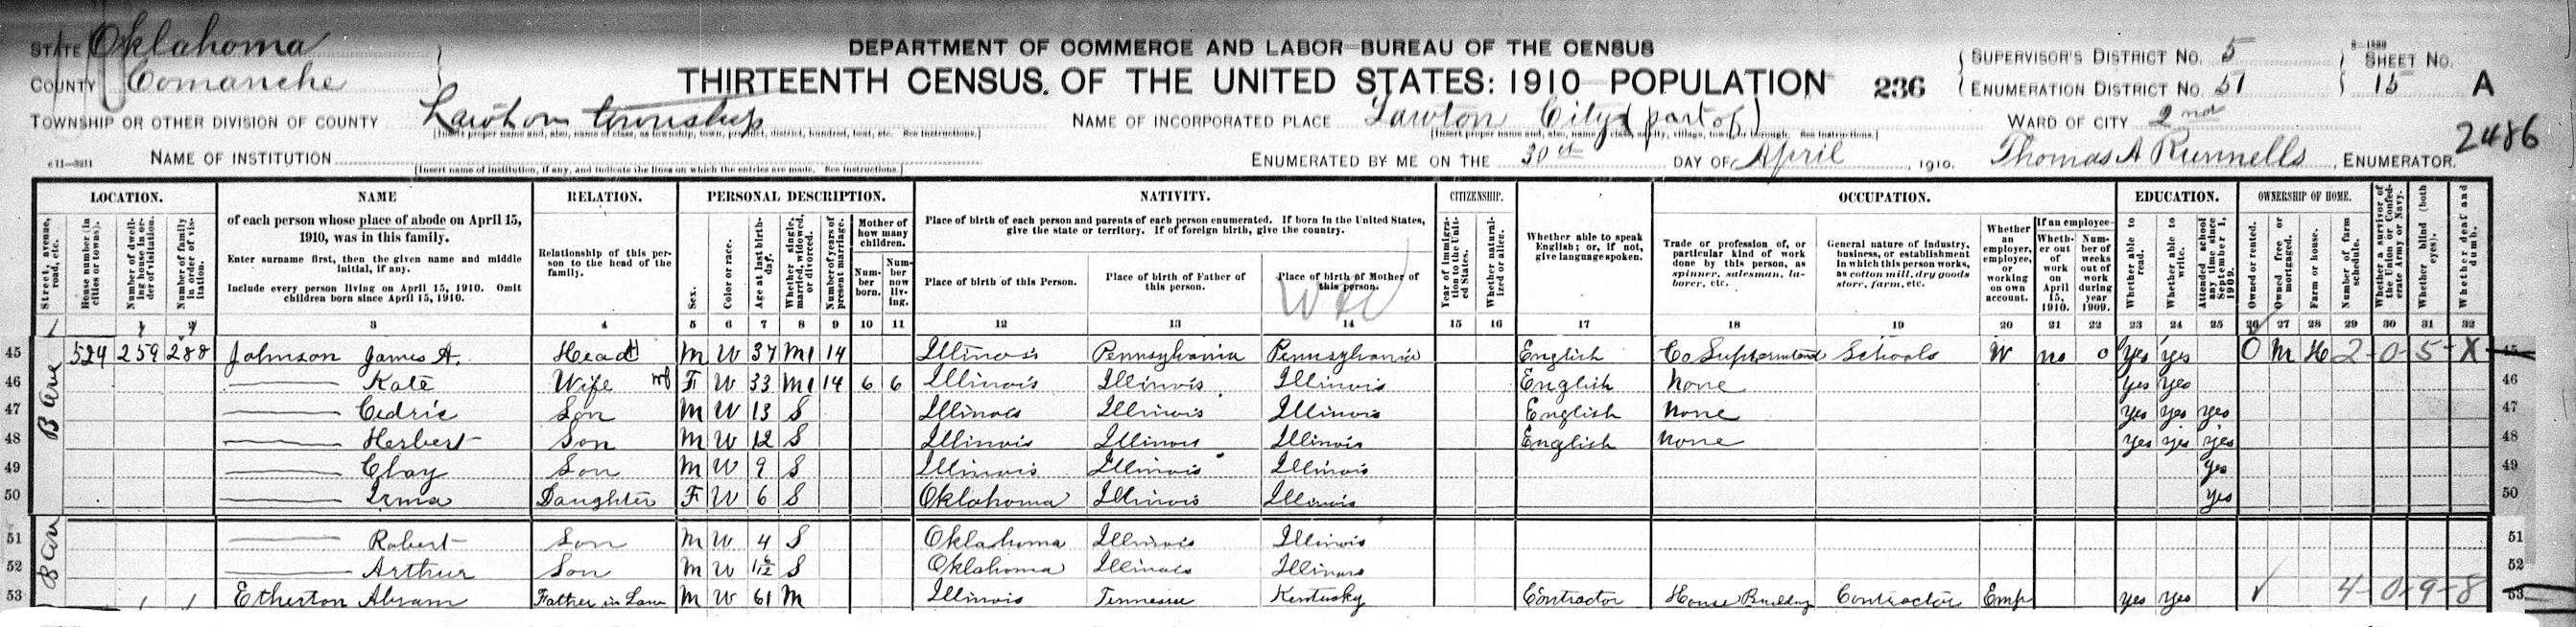 STATE Oklahoma
COUNTY Comanche
DEPARTMENT OF COMMERCE AND LABOR-BUREAU OF THE CENSUS
THIRTEENTH CENSUS OF THE UNITED STATES: 1910 POPULATION
236
SUPERVISOR'S DISTRICT No. 5
ENUMERATION DISTRICT No. 51
SHEET No.
15 A
TOWNSHIP OR OTHER DIVISION OF COUNTY Lawton township
NAME OF INCORPORATED PLACE Lawton City (part of)
WARD OF CITY 2nd
2486
NAME OF INSTITUTION
[Insert name of institution, if any, and indicate the lines on which the entries are made. See instructions.]
ENUMERATED BY ME ON THE 30th DAY OF April, 1910. Thomas A Runnells, ENUMERATOR.
LOCATION. NAME RELATION. PERSONAL DESCRIPTION. NATIVITY. CITIZENSHIP. OCCUPATION. EDUCATION. OWNERSHIP OF HOME.
Street, avenue, road, etc.
House number (in cities or towns).
Number of dwelling house in order of visitation.
Number of family in order of visitation.
of each person whose place of abode on April 15, 1910, was in this family.
Enter surname first, then the given name and middle initial, if any.
Include every person living on April 15, 1910. Omit children born since April 15, 1910.
Relationship of this person to the head of the family.
Sex.
Color or race.
Age at last birthday.
Whether single, married, widowed, or divorced.
Number of years of present marriage.
Mother of how many children.
Number born.
Number now living.
Place of birth of each person and parents of each person enumerated. If born in the United States, give the state or territory. If of foreign birth, give the country.
Place of birth of this Person.
Place of birth of Father of this person.
Place of birth of Mother of this person.
Year of immigration to the United States.
Whether naturalized or alien.
Whether able to speak English; or, if not, give language spoken.
Trade or profession of, or particular kind of work done by this person, as spinner, salesman, laborer, etc.
General nature of industry, business, or establishment in which this person works, as cotton mill, dry goods store, farm, etc.
Whether an employer, employee, or working on own account.
If an employee—
Whether out of work on April 15, 1910.
Number of weeks out of work during year 1909.
Whether able to read.
Whether able to write.
Attended school any time since September 1, 1909.
Owned or rented.
Owned free or mortgaged.
Farm or house.
Number of farm schedule.
Whether a survivor of the Union or Confederate Army or Navy.
Whether blind (both eyes).
Whether deaf and dumb.
1 2 3 4 5 6 7 8 9 10 11 12 13 14 15 16 17 18 19 20 21 22 23 24 25 26 27 28 29 30 31 32
45 524 259 288 Johnson James A. Head M W 37 M1 14 Illinois Pennsylvania Pennsylvania English Co Schools W no 0 yes yes O M H 2-0-5-X 45
46 Kate Wife F W 33 M1 14 6 6 Illinois Illinois Illinois English None yes yes 46
47 Cedric Son M W 13 S Illinois Illinois Illinois English None yes yes yes 47
48 Herbert Son M W 12 S Illinois Illinois Illinois English None yes yes yes 48
49 Clay Son M W 9 S Illinois Illinois Illinois yes 49
50 Irma Daughter F W 6 S Oklahoma Illinois Illinois yes 50
51 Robert Son M W 4 S Oklahoma Illinois Illinois 51
52 Arthur Son M W S Oklahoma Illinois Illinois 52
53 Etherton Abram Father in Law M W 61 M Illinois Tennessee Kentucky Contractor House Building Contractor Emp yes yes 4-0-9-8 53